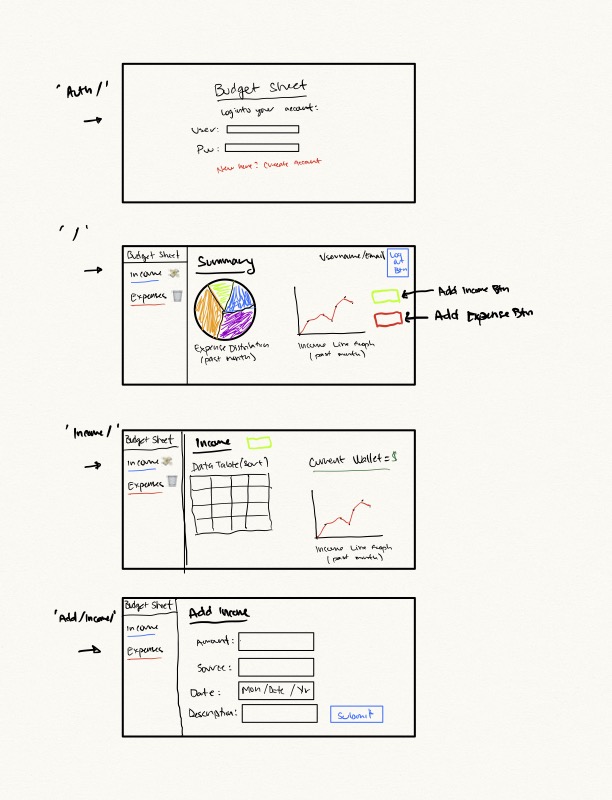 'Auth/'
Budget Sheet
Log into your account:
User:
Pw:
New here? Create Account
'/'
Budget Sheet
Income
Expenses
Summary
Username/Email
Log out Btn
Add Income Btn
Add Expense Btn
Expense Distribution
(past month)
Income Line Graph
(past month)
'Income/'
Budget Sheet
Income
Expenses
Income
Data Table (sort)
Current Wallet = $
Income Line Graph
(past month)
'Add/Income/'
Budget Sheet
Income
Expenses
Add Income
Amount:
Source:
Date:
Mon/Date/Yr
Description:
Submit